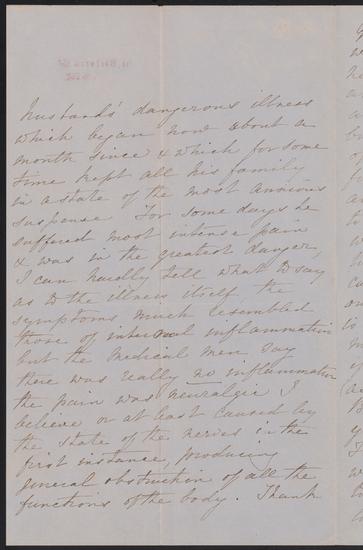 husband's dangerous illness
which began now about a
month since & which for some
time kept all his family
in a state of the most anxious
suspense For some days he
suffered most intense pain
& was in the greatest danger,
I can hardly tell what to say
as to the illness itself, the
symptoms much resembled
those of internal inflammation
but the medical men say
there was really no inflammation
the pain was neuralgic I
believe or at least caused by
the state of the nerves in the
first instance, producing
general obstruction of all the
functions of the body. Thank